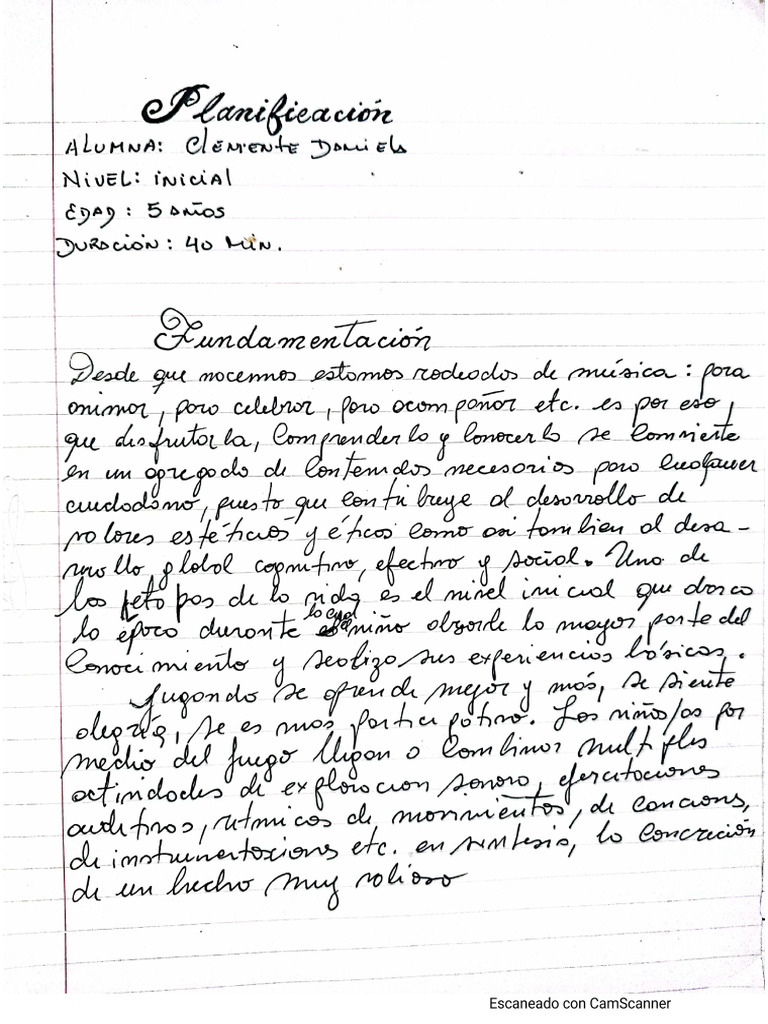 Planificación
ALUMNA: Clemente Daniela
Nivel: inicial
EDAD: 5 años
Duración: 40 Min.
Fundamentación
Desde que nacemos estamos rodeados de música: para
animar, para celebrar, para acompañar etc. es por eso,
que disfrutarla, Comprenderlo y Conocerlo se Convierte
en un agregado de Contenidos necesarios para Cualquier
ciudadano, puesto que contribuye al desarrollo de
valores estéticos y éticos como asi tambien al desa-
rrollo global cognitivo, efectivo y social. Una de
las etapas de la vida es el nivel inicial que abarca
la época durante la cual el niño absorbe la mayor parte del
Conocimiento y realiza sus experiencias básicas.
Jugando se aprende mejor y más, se siente
alegría, se es mas participativo. Los niños/as por
medio del juego llegan a Combinar multiples
actividades de exploracion sonora, ejercitaciones
auditivas, ritmicas de movimientos, de canciones,
de instrumentaciones etc. en sintesis, la Concreción
de un hecho muy valioso
Escaneado con CamScanner